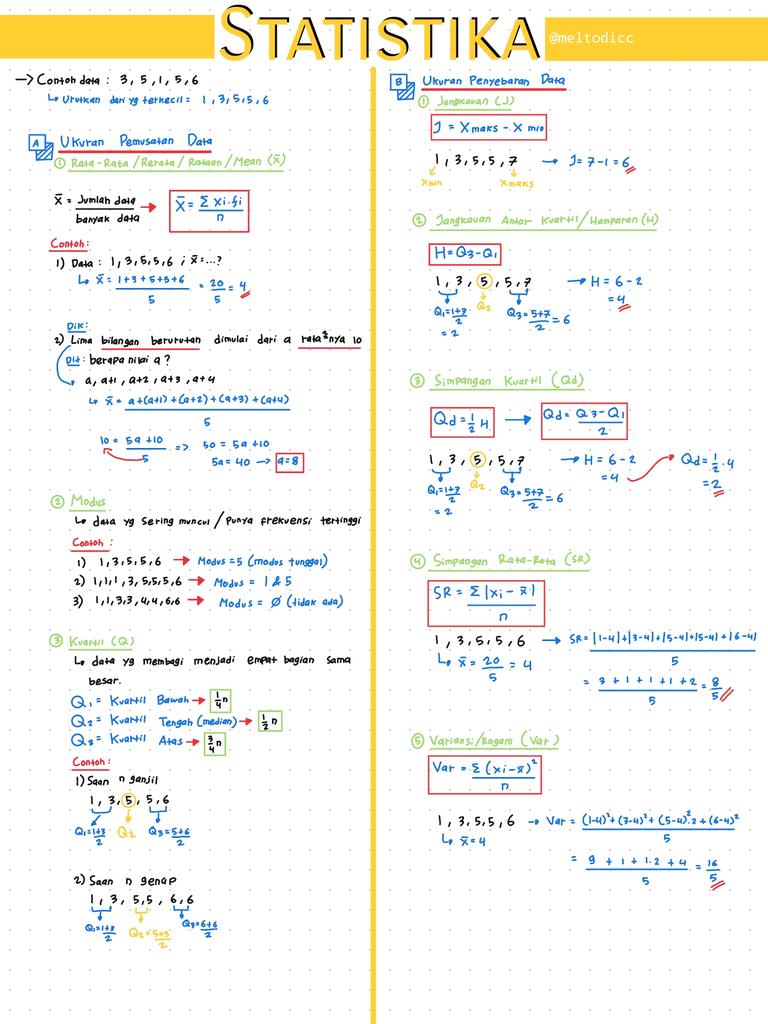 STATISTIKA
@meltodicc
→ Contoh data : 3, 5, 1, 5, 6
↳ Urutkan dari yg terkecil = 1, 3, 5, 5, 6
A Ukuran Pemusatan Data
① Rata-Rata / Rerata / Rataan / Mean (x̄)
x̄ = Jumlah data / banyak data → x̄ = Σ xi.fi / n
Contoh:
1) Data : 1, 3, 5, 5, 6 ; x̄ = ...?
↳ x̄ = 1+3+5+5+6 / 5 = 20/5 = 4
Dik:
2) Lima bilangan berurutan dimulai dari a rata²nya 10
Dit: berapa nilai a ?
a, a+1, a+2, a+3, a+4
↳ x̄ = a+(a+1)+(a+2)+(a+3)+(a+4) / 5
10 = 5a+10 / 5 => 50 = 5a+10
5a = 40 → a=8
② Modus
↳ data yg sering muncul / punya frekuensi tertinggi
Contoh:
1) 1, 3, 5, 5, 6 → Modus = 5 (modus tunggal)
2) 1, 1, 1, 3, 5, 5, 5, 6 → Modus = 1 & 5
3) 1, 1, 3, 3, 4, 4, 6, 6 → Modus = Ø (tidak ada)
③ Kuartil (Q)
↳ data yg membagi menjadi empat bagian sama
besar.
Q1 = Kuartil Bawah → 1/4 n
Q2 = Kuartil Tengah (median) → 1/2 n
Q3 = Kuartil Atas → 3/4 n
Contoh:
1) Saan n ganjil
1, 3, 5, 5, 6
Q1 = 1+3 / 2 Q2 Q3 = 5+6 / 2
2) Saan n genap
1, 3, 5, 5, 6, 6
Q1 = 1+3 / 2 Q2 = 5+5 / 2 Q3 = 6+6 / 2
B Ukuran Penyebaran Data
① Jangkauan (J)
J = X maks - X min
1, 3, 5, 5, 7 → J = 7-1 = 6
X min X maks
② Jangkauan Antar Kuartil / Hamparan (H)
H = Q3 - Q1
1, 3, 5, 5, 7 → H = 6 - 2
= 4
Q1 = 1+3 / 2 Q2 Q3 = 5+7 / 2 = 6
= 2
③ Simpangan Kuartil (Qd)
Qd = 1/2 H → Qd = Q3 - Q1 / 2
1, 3, 5, 5, 7 → H = 6 - 2 Qd = 1/2 . 4
= 4 = 2
Q1 = 1+3 / 2 Q2 Q3 = 5+7 / 2 = 6
= 2
④ Simpangan Rata-Rata (SR)
SR = Σ |xi - x̄| / n
1, 3, 5, 5, 6 → SR = |1-4|+|3-4|+|5-4|+|5-4|+|6-4| / 5
↳ x̄ = 20/5 = 4
= 3 + 1 + 1 + 1 + 2 / 5 = 8/5
⑤ Variansi/Ragam (Var)
Var = Σ (xi - x̄)² / n
1, 3, 5, 5, 6 → Var = (1-4)² + (3-4)² + (5-4)².2 + (6-4)² / 5
↳ x̄ = 4
= 9 + 1 + 1.2 + 4 / 5 = 16/5